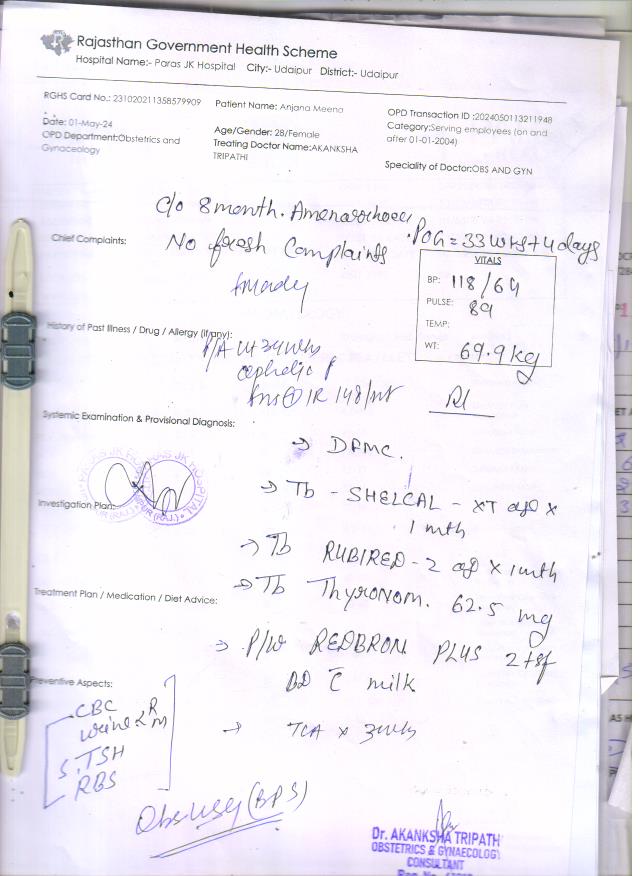 Rajasthan Government Health Scheme
Hospital Name:- Paras JK Hospital City:- Udaipur District:- Udaipur
RGHS Card No.: 231020211358579909
Patient Name: Anjana Meena
OPD Transaction ID :2024050113211948
Date: 01-May-24
Age/Gender: 28/Female
Category:Serving employees (on and after 01-01-2004)
OPD Department:Obstetrics and Gynaecology
Treating Doctor Name:AKANKSHA TRIPATHI
Speciality of Doctor:OBS AND GYN
c/o 8 month. Amenorrhoea
POG = 33 wks + 4 days
Chief Complaints:
No fresh Complaints
VITALS
BP: 118/64
PULSE: 89
TEMP:
WT: 69.9 kg
History of Past Illness / Drug / Allergy (if any):
P/A Ut 34 wks
cephalic P
148/mt
Systemic Examination & Provisional Diagnosis:
→ DFMC.
→ Tb - SHELCAL - XT × 1 mth
Investigation Plan:
→ Tb RUBIRED - 2 × 1 mth
→ Tb Thyronom. 62.5 mg
Treatment Plan / Medication / Diet Advice:
→ P/W REDBRON PLUS 2 tsf
BD c̄ milk
Preventive Aspects:
CBC
urine R M
S. TSH
RBS
→ TCA × 3 wks
Obs USG (BPS)
Dr. AKANKSHA TRIPATHI
OBSTETRICS & GYNAECOLOGY
CONSULTANT